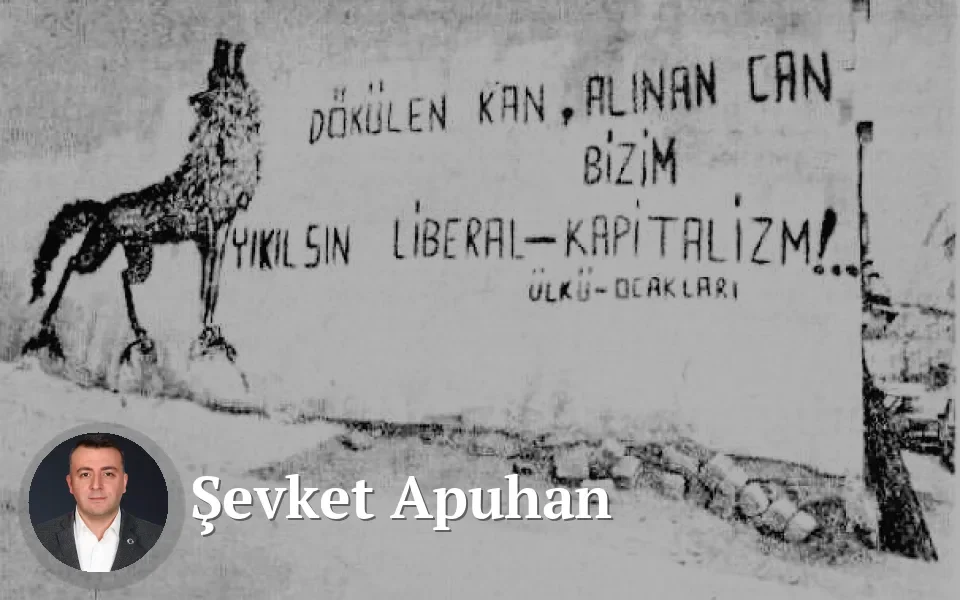 DÖKÜLEN KAN, ALINAN CAN
BİZİM
YIKILSIN LİBERAL-KAPİTALİZM!...
ÜLKÜ-OCAKLARI
Şevket Apuhan